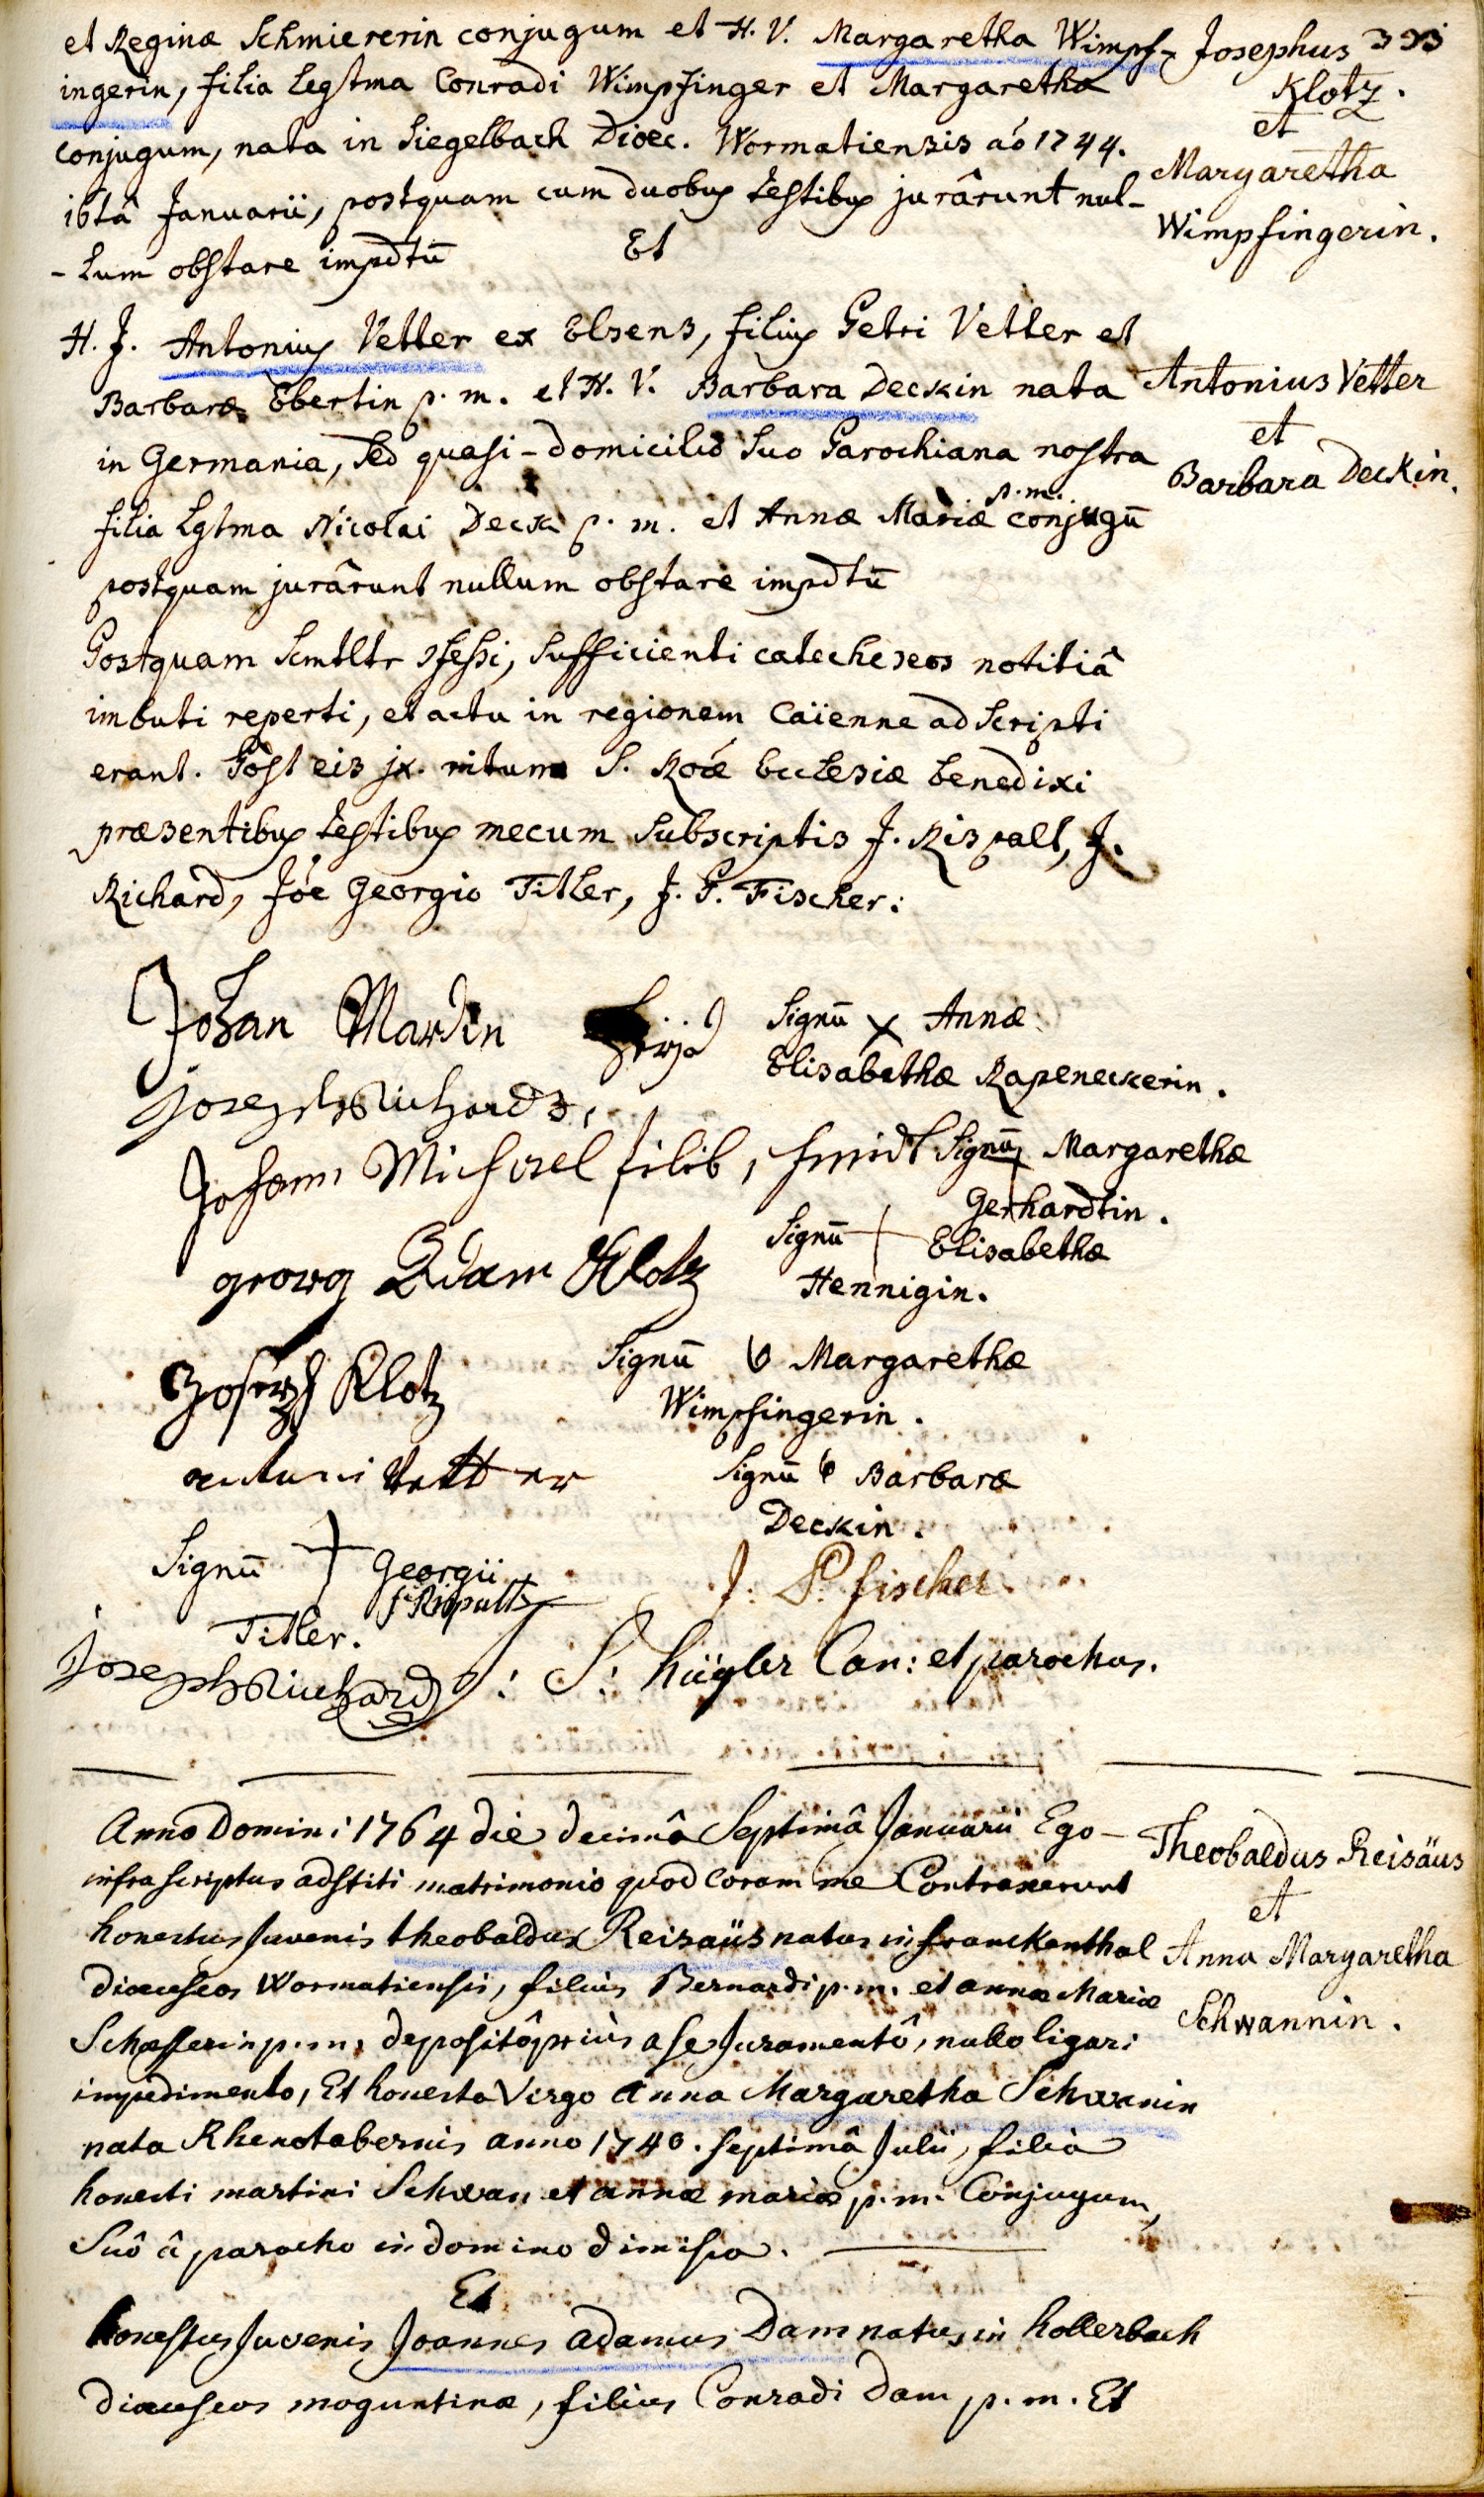 et Reginæ Schmiererin conjugum et H. V. Margaretha Wimpf-
ingerin, filia legtma Conradi Wimpfinger et Margaretha
conjugum, nata in Siegelbach Dioec. Wormatiensis aō 1744.
16tâ Januarii, postquam cum duobus testibus jurârunt nul-
-lum obstare impdtū
Et
Josephus
Klotz.
et
Margaretha
Wimpfingerin.
H. J. Antonius Vetter ex Elsens, filius Petri Vetter et
Barbaræ Ebertin p. m. et H. V. Barbara Deckin nata
in Germania, sed quasi-domicilio suo Parochiana nostra
filia Lgtma Nicolai Deck p. m. et Annæ Mariæ p. m. conjugū
postquam jurârunt nullum obstare impdtū
Antonius Vetter
et
Barbara Deckin.
Postquam Scmtltr ɔfessi, sufficienti catecheseos notitiâ
imbuti reperti, et actu in regionem Caïenne adscripti
erant. Post eis jx. ritum S. Roæ Ecclesiæ benedixi
præsentibus testibus mecum subscriptis J. Rispalt, J.
Richard, Jōe Georgio Titler, J. P. Fischer:
Johan Martin
Signū x Annæ
Elisabethæ Rapeneckerin.
Joseph Richards,
Johann Michael filib, smidt
Signū Margarethæ
Gerhardtin.
georg Adam Klotz
Signū + Elisabethæ
Hennigin.
Joseph Klotz
Signū Margarethæ
Wimpfingerin.
antuni Vetter
Signū Barbaræ
Deckin.
Signū + Georgii
Titler.
J: Rispalt
J: P. fischer
Joseph Richard
S: hügler Can: et parochus.
Anno Domini 1764 die decimâ Septimâ Januarii Ego-
infrascriptus adstiti matrimonio quod coram me Contraxerunt
honestus Juvenis theobaldus Reisaüs natus in franckenthal
dioeceseos Wormatiensis, filius Bernardi p. m. et annæ Mariæ
Schæfferin p. m. depositô priùs a se Juramentô, nullo ligari
impedimento, Et honesta Virgo Anna Margaretha Schwanin
nata Rhenotabernis anno 1740. septimâ Julii, filia
honesti martini Schwan et annæ mariæ p. m. Conjugum,
Suô â parocho in domino dimissa.
Theobaldus Reisäus
et
Anna Margaretha
Schwannin.
Et
honestus Juvenis Joannes adamus Dam natus in hollerbach
dioeceseos moguntinæ, filius Conradi Dam p. m. Et